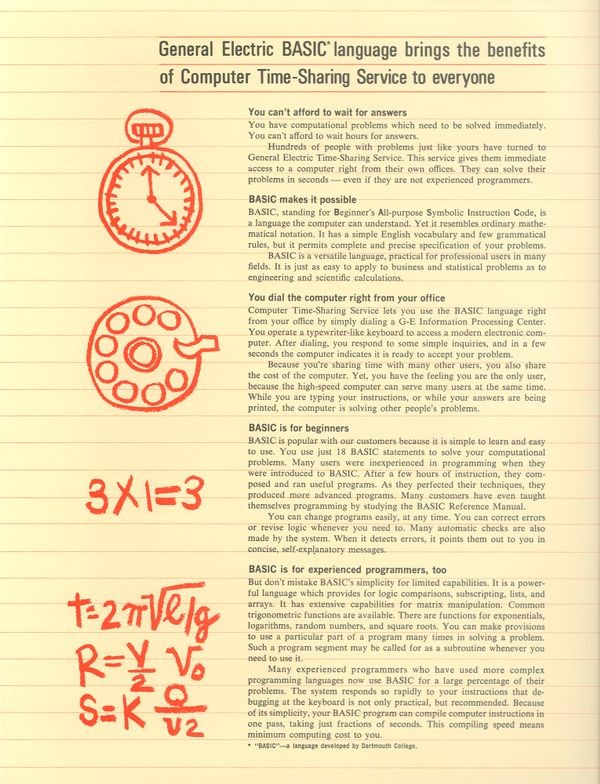 General Electric BASIC* language brings the benefits
of Computer Time-Sharing Service to everyone
You can't afford to wait for answers
You have computational problems which need to be solved immediately.
You can't afford to wait hours for answers.
Hundreds of people with problems just like yours have turned to
General Electric Time-Sharing Service. This service gives them immediate
access to a computer right from their own offices. They can solve their
problems in seconds — even if they are not experienced programmers.
BASIC makes it possible
BASIC, standing for Beginner's All-purpose Symbolic Instruction Code, is
a language the computer can understand. Yet it resembles ordinary mathe-
matical notation. It has a simple English vocabulary and few grammatical
rules, but it permits complete and precise specification of your problems.
BASIC is a versatile language, practical for professional users in many
fields. It is just as easy to apply to business and statistical problems as to
engineering and scientific calculations.
You dial the computer right from your office
Computer Time-Sharing Service lets you use the BASIC language right
from your office by simply dialing a G-E Information Processing Center.
You operate a typewriter-like keyboard to access a modern electronic com-
puter. After dialing, you respond to some simple inquiries, and in a few
seconds the computer indicates it is ready to accept your problem.
Because you're sharing time with many other users, you also share
the cost of the computer. Yet, you have the feeling you are the only user,
because the high-speed computer can serve many users at the same time.
While you are typing your instructions, or while your answers are being
printed, the computer is solving other people's problems.
BASIC is for beginners
BASIC is popular with our customers because it is simple to learn and easy
to use. You use just 18 BASIC statements to solve your computational
problems. Many users were inexperienced in programming when they
were introduced to BASIC. After a few hours of instruction, they com-
posed and ran useful programs. As they perfected their techniques, they
produced more advanced programs. Many customers have even taught
themselves programming by studying the BASIC Reference Manual.
You can change programs easily, at any time. You can correct errors
or revise logic whenever you need to. Many automatic checks are also
made by the system. When it detects errors, it points them out to you in
concise, self-explanatory messages.
3X1=3
BASIC is for experienced programmers, too
But don't mistake BASIC's simplicity for limited capabilities. It is a power-
ful language which provides for logic comparisons, subscripting, lists, and
arrays. It has extensive capabilities for matrix manipulation. Common
trigonometric functions are available. There are functions for exponentials,
logarithms, random numbers, and square roots. You can make provisions
to use a particular part of a program many times in solving a problem.
Such a program segment may be called for as a subroutine whenever you
need to use it.
Many experienced programmers who have used more complex
programming languages now use BASIC for a large percentage of their
problems. The system responds so rapidly to your instructions that de-
bugging at the keyboard is not only practical, but recommended. Because
of its simplicity, your BASIC program can compile computer instructions in
one pass, taking just fractions of seconds. This compiling speed means
minimum computing cost to you.
t=2π√l/g
R=V/2 V₀
S=K Q/V2
* "BASIC"—a language developed by Dartmouth College.